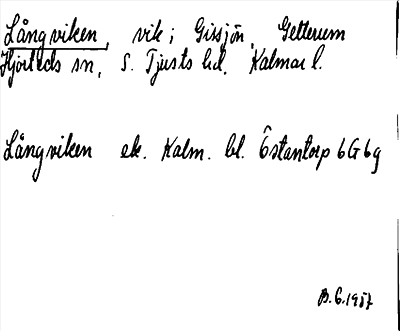 Långviken, vik i Gissjön, Getterum
Hjorteds sn, S. Tjusts hd. Kalmar l.
Långviken ek. Kalm. bl. Östantorp 6G6g
B.G. 1957